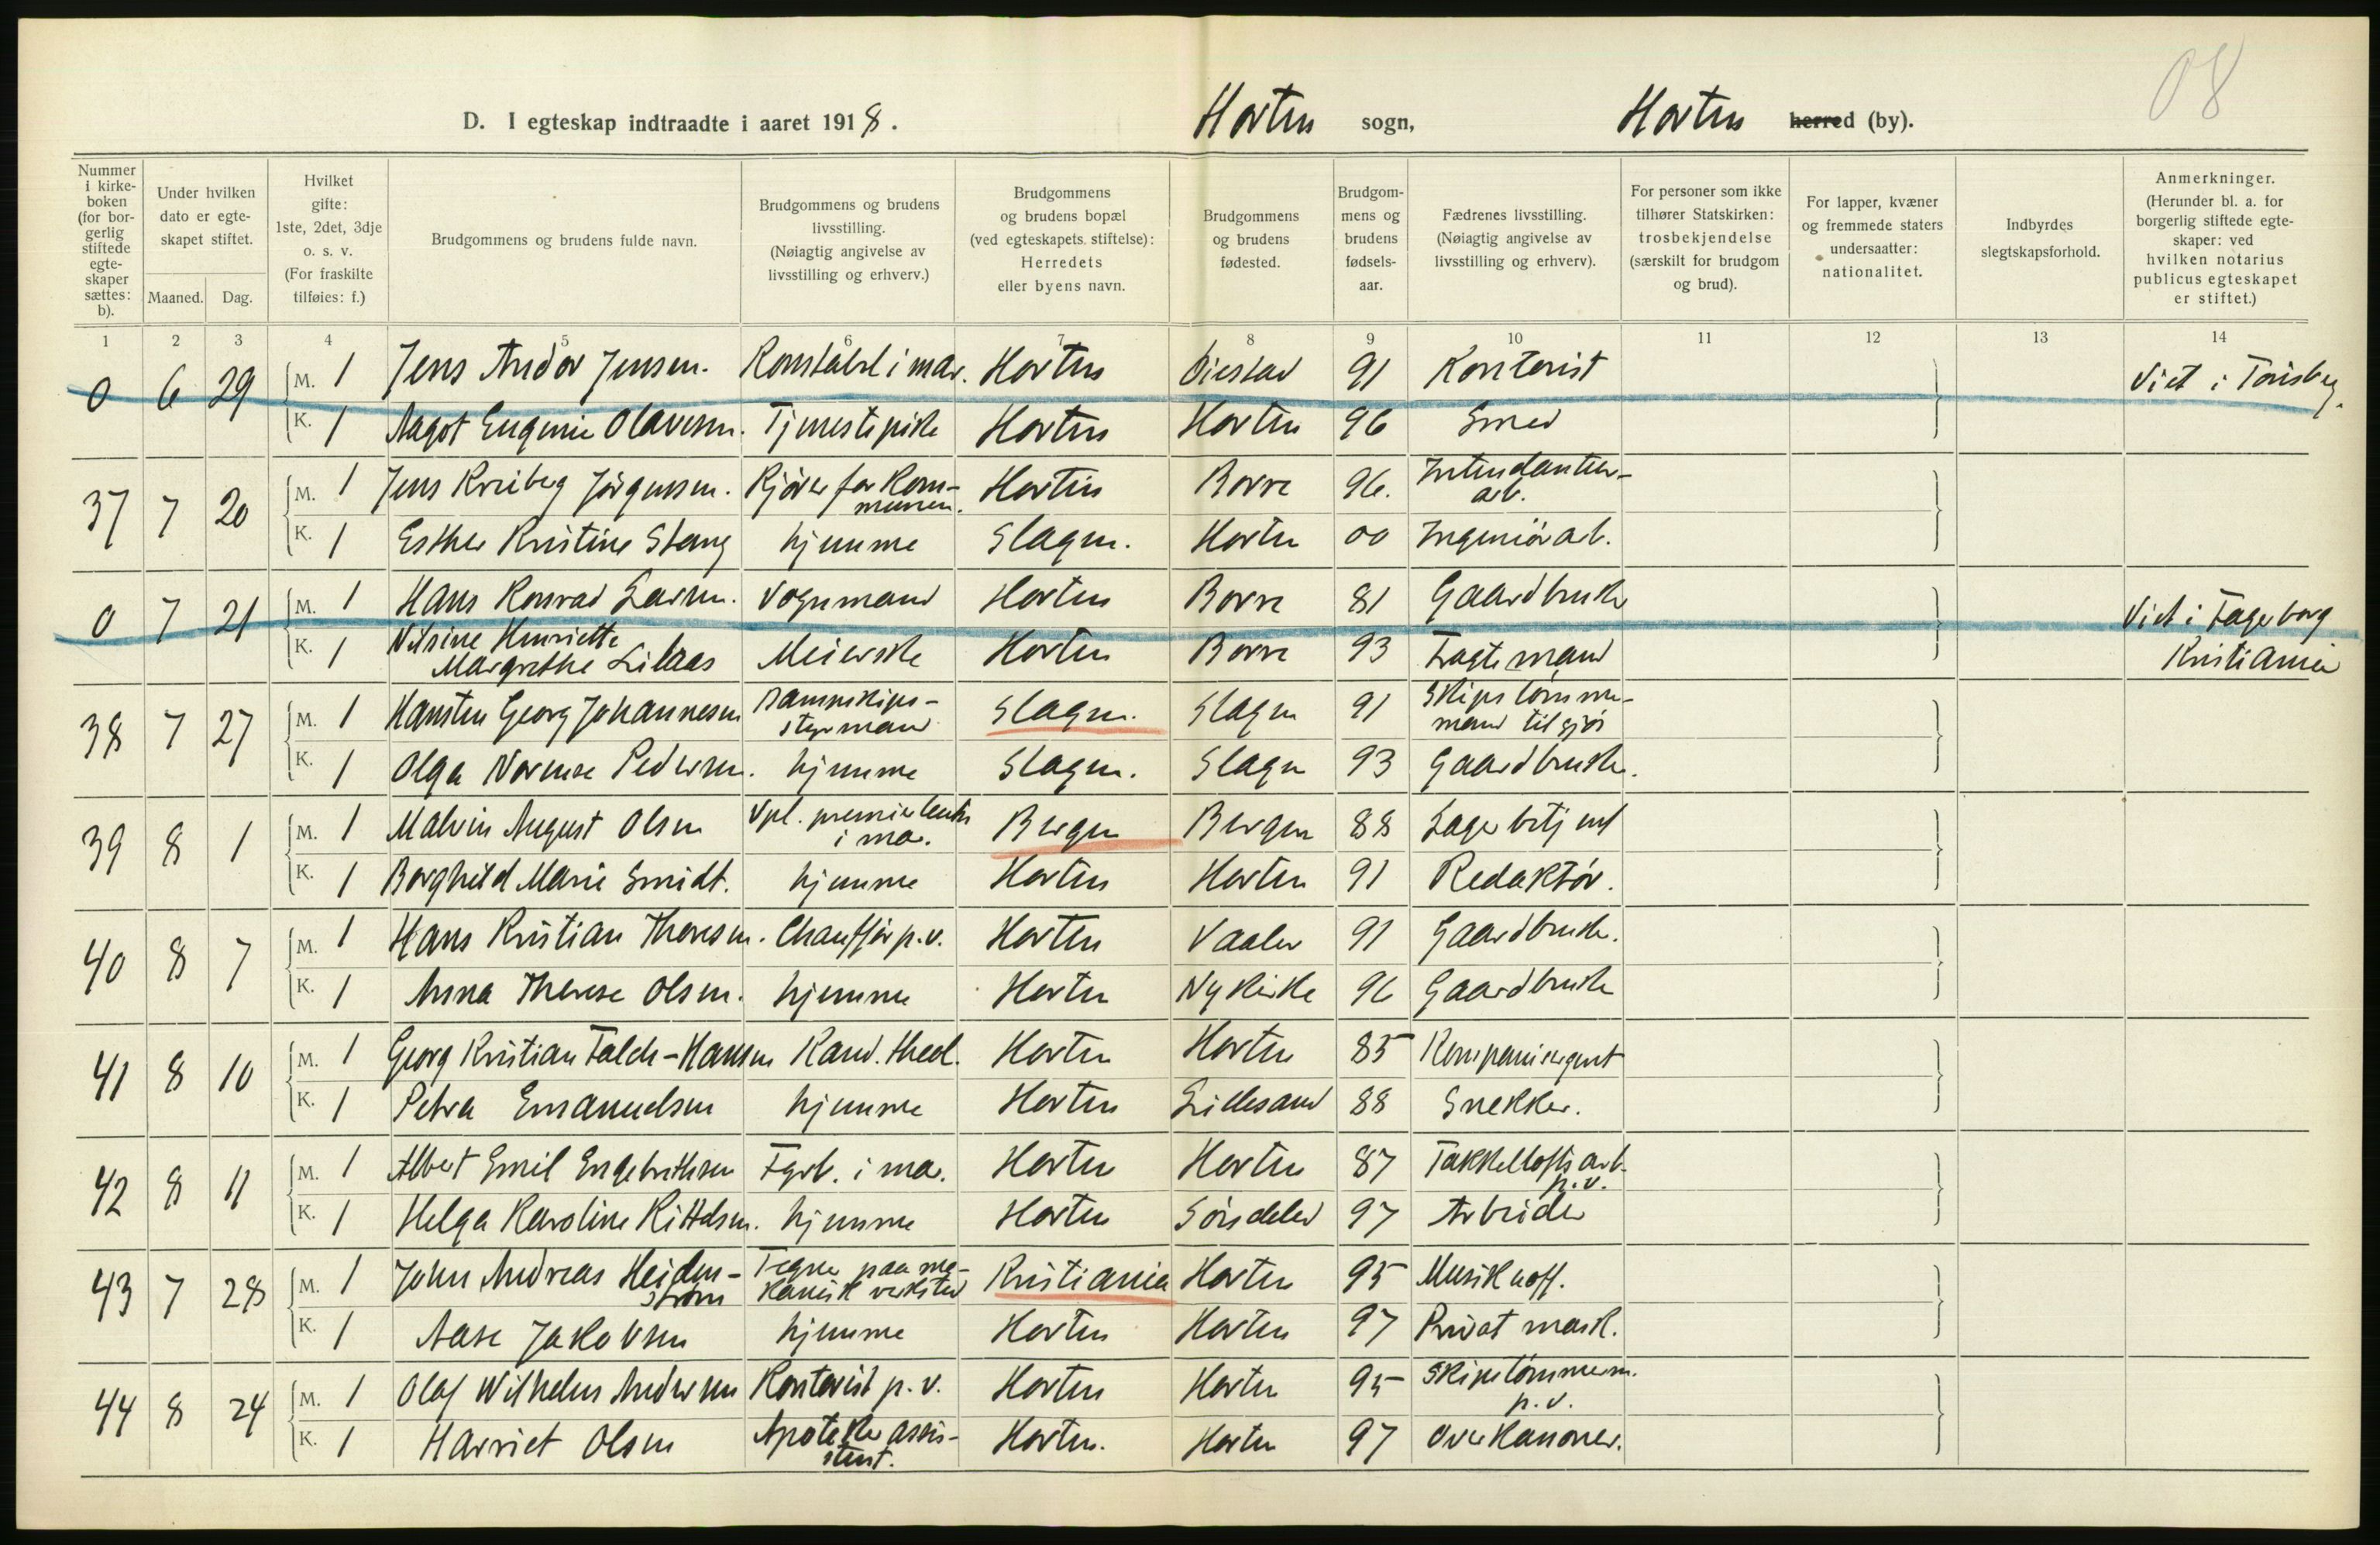 08
D. I egteskap indtraadte i aaret 1918. Horten sogn, Horten herred (by).
Nummer i kirke- boken (for bor- gerlig stiftede egte- skaper sættes: b).
Under hvilken dato er egte- skapet stiftet.
Maaned. Dag.
Hvilket gifte: 1ste, 2det, 3dje o. s. v. (For fraskilte tilføies: f.)
Brudgommens og brudens fulde navn.
Brudgommens og brudens livsstilling. (Nøiagtig angivelse av livsstilling og erhverv.)
Brudgommens og brudens bopæl (ved egteskapets stiftelse): Herredets eller byens navn.
Brudgommens og brudens fødested.
Brudgom- mens og brudens fødsels- aar.
Fædrenes livsstilling. (Nøiagtig angivelse av livsstilling og erhverv).
For personer som ikke tilhører Statskirken: trosbekjendelse (særskilt for brudgom og brud).
For lapper, kvæner og fremmede staters undersaatter: nationalitet.
Indbyrdes slegtskapsforhold.
Anmerkninger. (Herunder bl. a. for borgerlig stiftede egte- skaper: ved hvilken notarius publicus egteskapet er stiftet.)
1 2 3 4 5 6 7 8 9 10 11 12 13 14
0 6 29 M. 1 Jens Andor Jensen. Konstabel i mar. Horten 91 Kontorist Viet i Tønsberg.
K. 1 Aagot Eugenie Olavesen. Tjenestepike Horten Horten 96 Smed
37 7 20 M. 1 Jens Jørgensen. Kjører for Kom- munen. Horten Borre 96. Intendantur- arb.
K. 1 Esther Kristine Stang hjemme Slagen. Horten 00 Ingeniørarb.
0 7 21 M. 1 Hans Konrad Larsen. Vognmand Horten Borre 81 Gaardbruker Viet i Fagerborg
K. 1 Nilsine Henriette Margrethe Lilaas Meierske Horten Borre 93 Fragtemand Kristiania
38 7 27 M. 1 Hansten Georg Johannesen Dampskips- styrmand Slagen. Slagen 91 Skipstømmer- mand til sjøs
K. 1 Olga Pedersen. hjemme Slagen. Slagen 93 Gaardbruker.
39 8 1 M. 1 Malvin August Olsen Vpl. premierløitn i mar. Bergen Bergen 88 Lagerbetjent
K. 1 Borghild Marie Smidt. hjemme Horten Horten 91 Redaktør.
40 8 7 M. 1 Hans Kristian Thoresen. Chauffør p.v. Horten Vaaler 91 Gaardbruker.
K. 1 Anna Therese Olsen. hjemme Horten Nykirke 96 Gaardbruker
41 8 10 M. 1 Georg Kristian Falch-Hansen Kand. theol. Horten Horten 85 Kompaniskrgent
K. 1 Petra Emanuelsen hjemme Horten Lillesand 88 Snekker.
42 8 11 M. 1 Albert Emil Engebrethsen Fyrb. i mar. Horten Horten 87 Takkelloftsarb. p.v.
K. 1 Helga Karoline Kittelsen. hjemme Horten Søndeled 97 Arbeider
43 7 28 M. 1 John Andreas Heiden- strøm Tegner paa me- kanisk verksted Kristiania Horten 95 Musikuoff.
K. 1 Aase Jakobsen hjemme Horten Horten 97 Privat mask.
44 8 24 M. 1 Olaf Wilhelm Andersen Kontorist p.v. Horten Horten 95 Skipstømmerm. p.v.
K. 1 Harriet Olsen Apoteker assis- stent. Horten. Horten 97 Overkanoner.